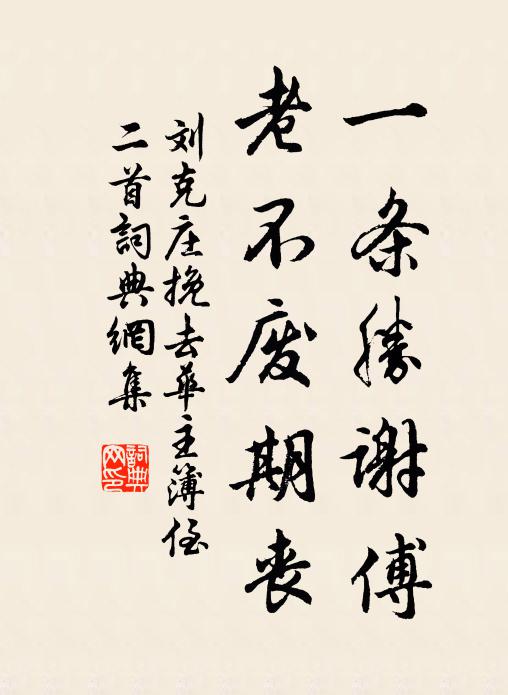 一条勝谢傅
老不废期丧
刘克庄挽去華主簿侄
二首詞典網集
詞典网印